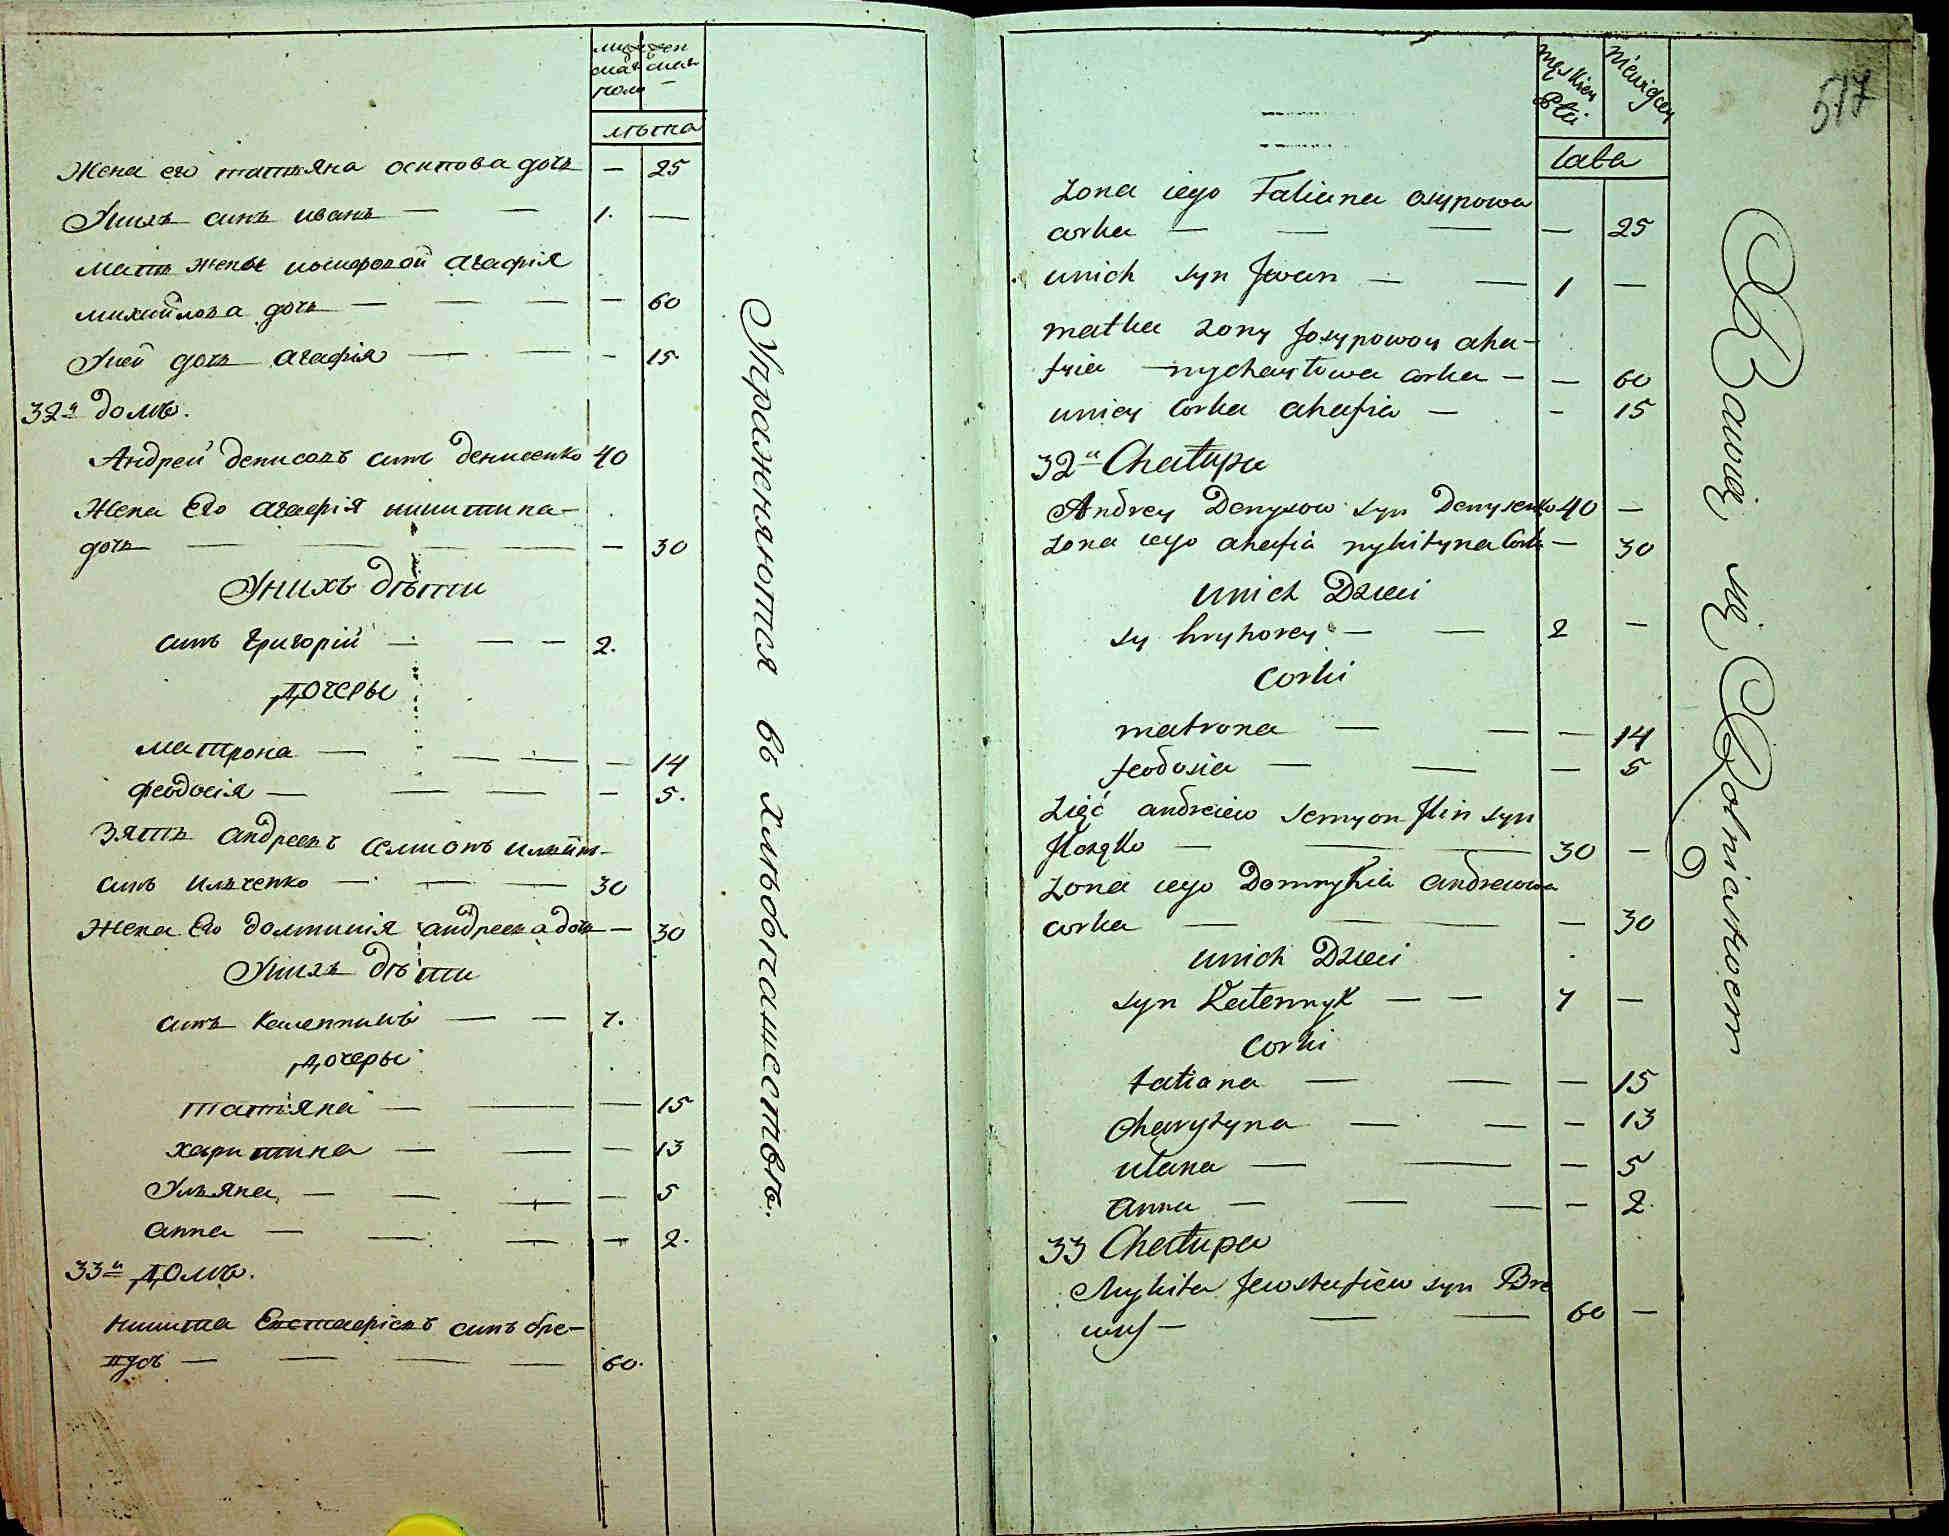 мужеска женска
полу —
лѣта
Жена его татьяна осипова дочь — 25
Унихъ синъ иванъ — — 1. —
мать жены иосиповой агафія
михайлова дочь — — — — 60
Уней дочь агафія — — — 15
32й домъ.
Андрей денисовъ синъ денисенко 40
Жена Его агафія никитина
дочь — — — — — 30
Унихъ дѣти
синъ григорій — — — 2.
дочеры
матрона — — — — 14
феодосія — — — — 5.
зять андреевъ семионъ ильинъ
синъ ильченко — — — 30
Жена Его домникия андреева дочь — 30
Унихъ дѣти
синъ каленникъ — — 7.
дочеры
татіяна — — — 15
харитина — — — 13
Ульяна — — — — 5
анна — — — — 2.
33й домъ.
никита Евстафіевъ синъ бре-
вусъ — — — — 60.
Упражняются въ хлѣбопашествѣ.
męskiey niewiscey
Płci
Lata
Zona iego Taliana osypowa
corka — — — — 25
unich syn Jwan — — 1 —
matka zony Josypowoy aha-
fyia mychayłowa corka — — 60
uniey Corka ahafia — — 15
32a Chałupa
Andrey Denysow syn Denysenko 40 —
Zona iego ahafia nykityna Corka — 30
unich Dzieci
sy hryhorey — — 2 —
corki
matrona — — — 14
feodosia — — — 5
Zięć andreiew semyon Jlin syn
Jlczęko — — — 30 —
Zona iego Domnykia andreiowa
corka — — — 30
unich Dzieci
syn Kalennyk — — 7 —
Corki
tatiana — — — 15
Charytyna — — — 13
ulana — — — 5
anna — — — — 2.
33 Chałupa
Mykita Jewstafiew syn Bre
wus — — — 60 —
Bawią się Rolnictwem
517